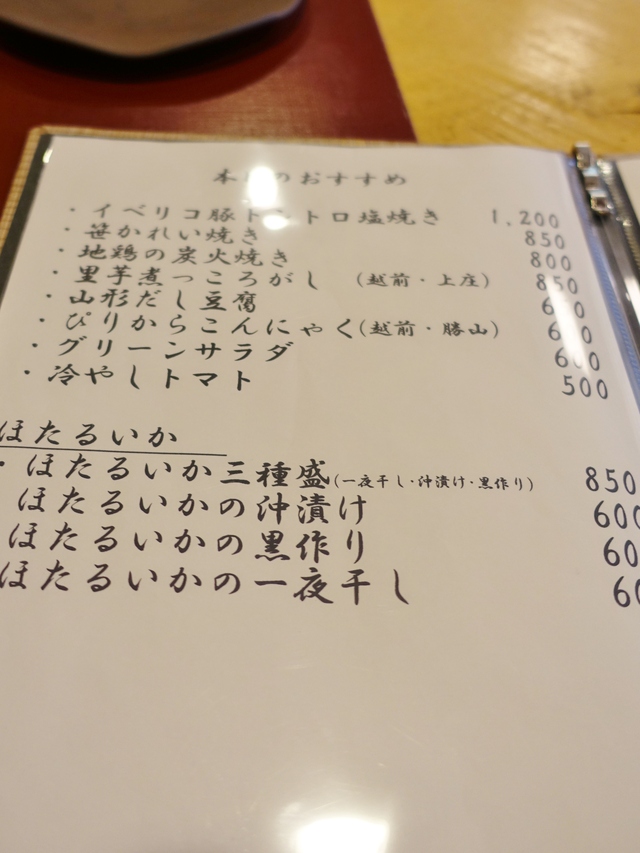 本日のおすすめ
・イベリコ豚トントロ塩焼き 1,200
・笹かれい焼き 850
・地鶏の炭火焼き 800
・里芋煮っころがし (越前・上庄) 850
・山形だし豆腐
・ぴりからこんにゃく(越前・勝山)
・グリーンサラダ
・冷やしトマト 500
ほたるいか
・ほたるいか三種盛(一夜干し・沖漬け・黒作り) 850
ほたるいかの沖漬け 600
ほたるいかの黒作り
ほたるいかの一夜干し